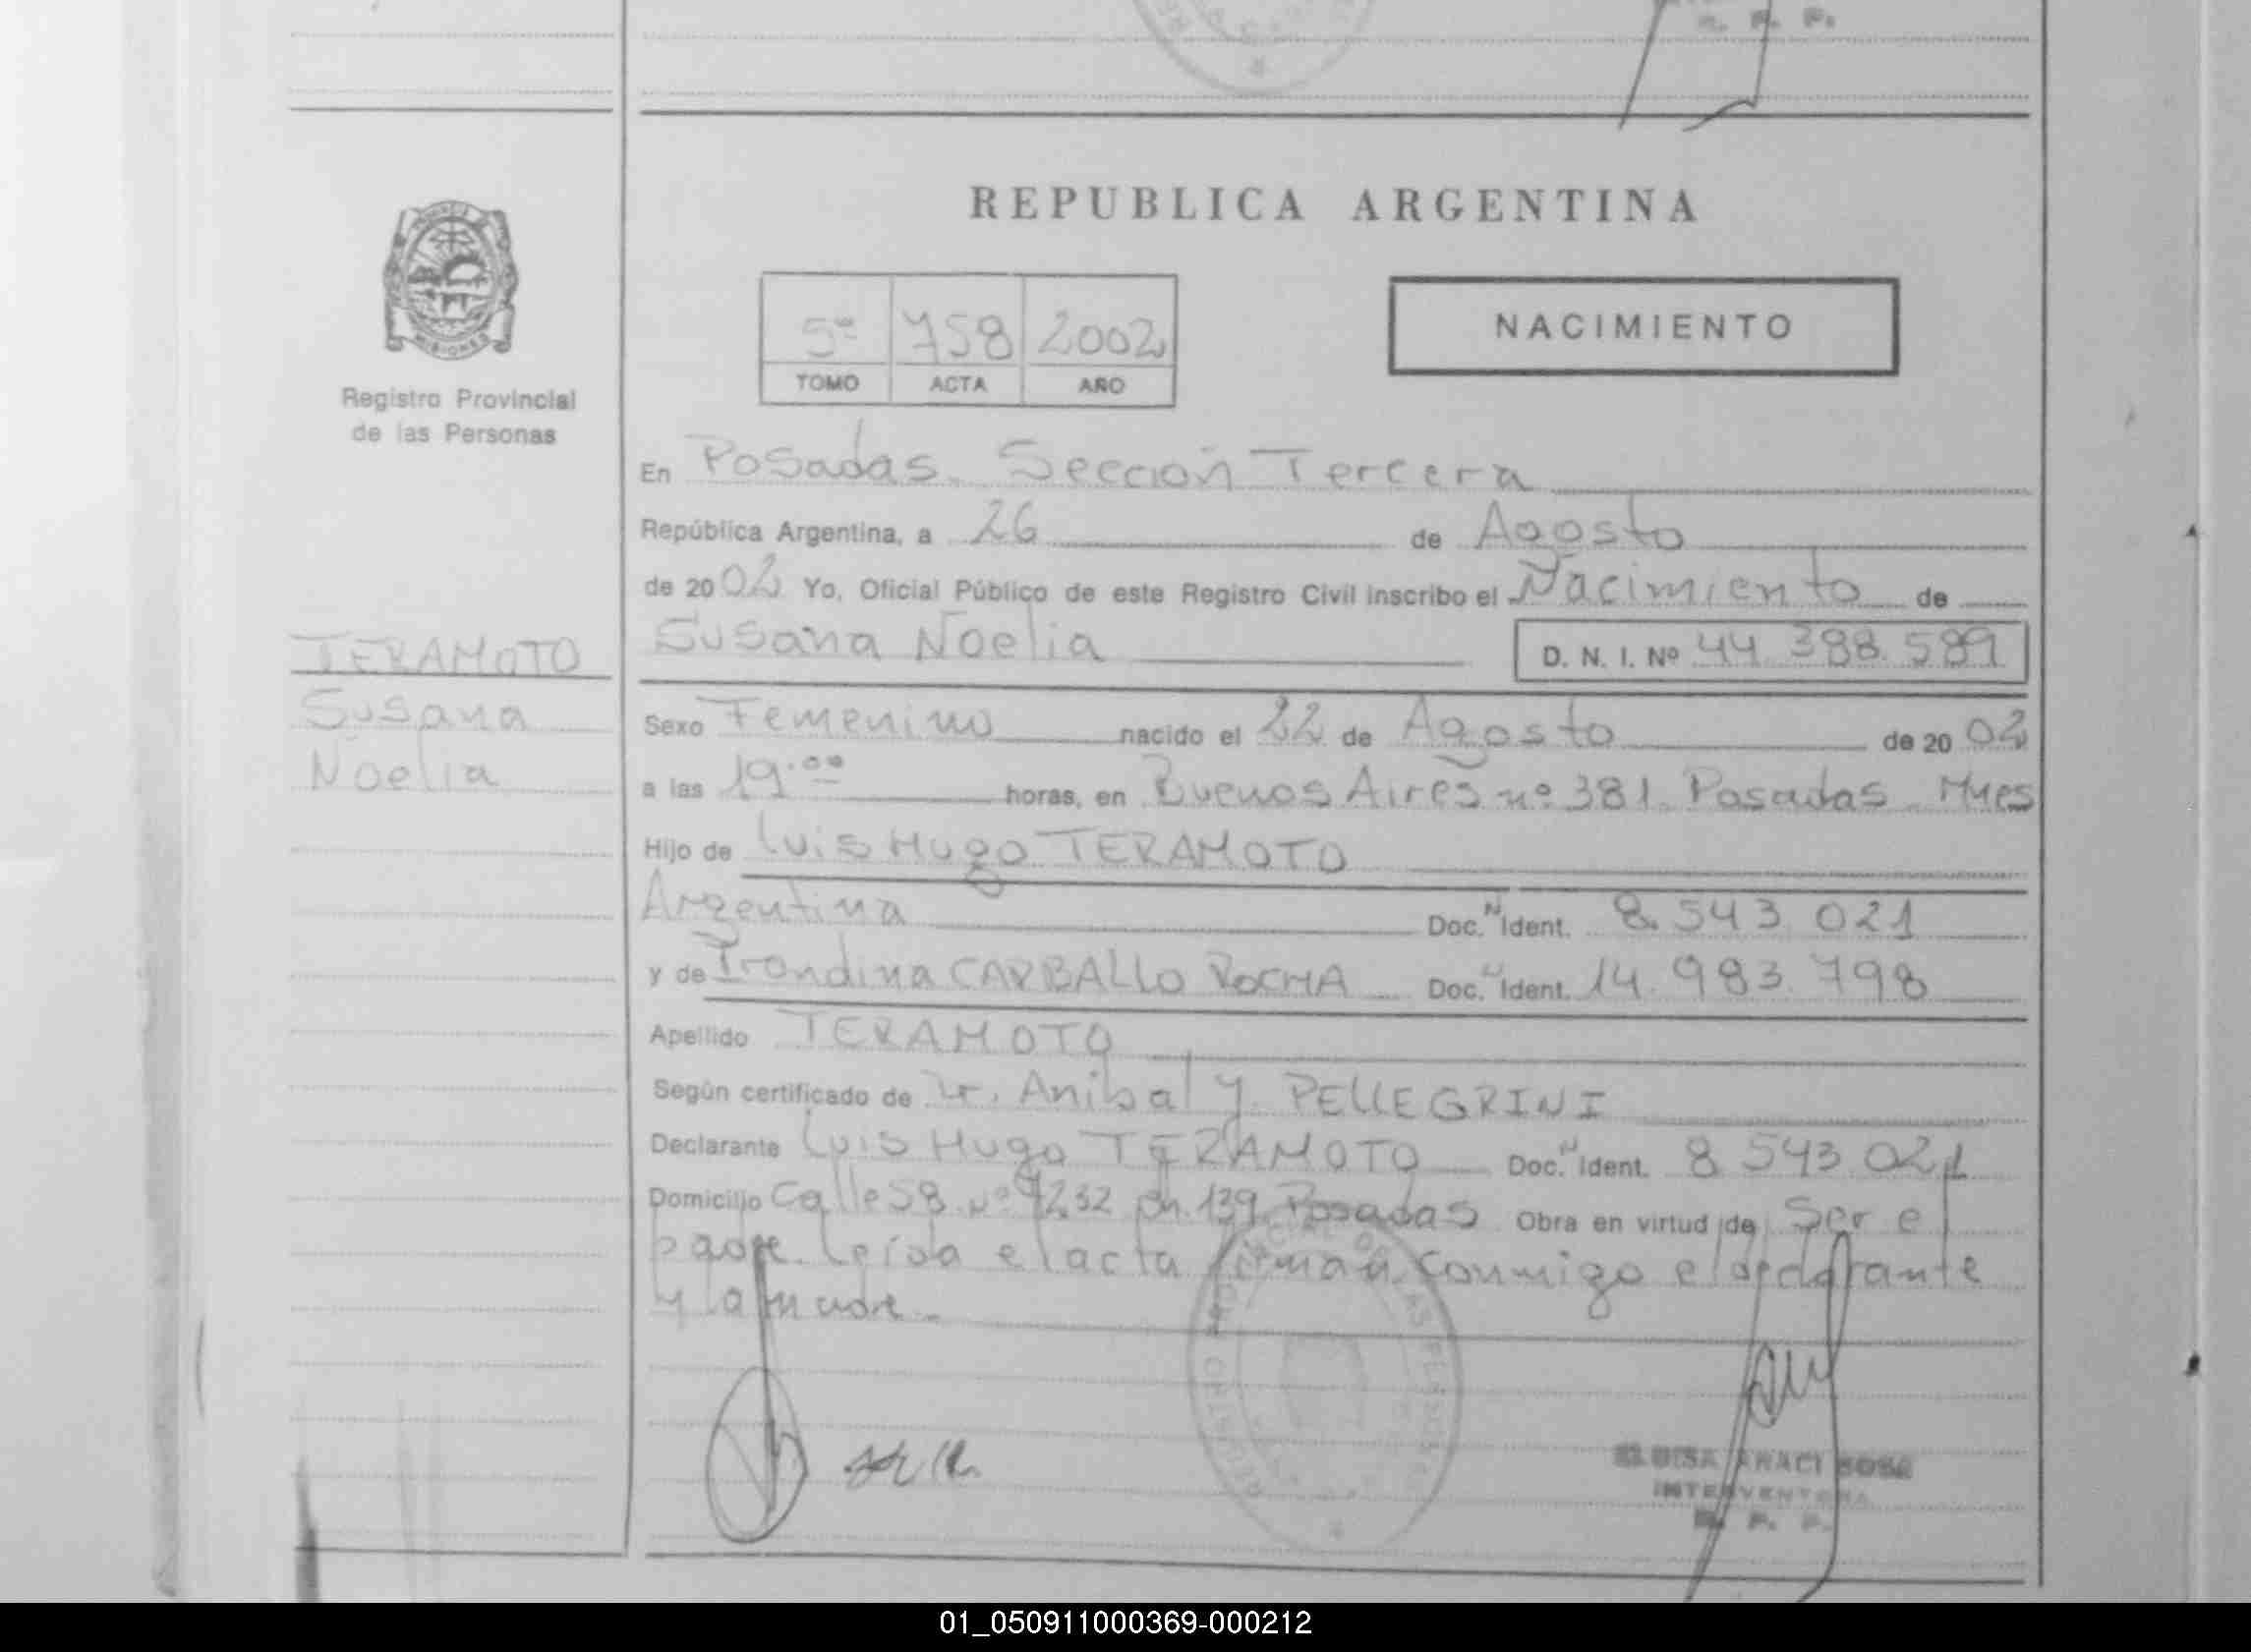 R. P. P.
REPUBLICA ARGENTINA
MISIONES
Registro Provincial
de las Personas
5º 758 2002
TOMO ACTA AÑO
NACIMIENTO
En Posadas. Sección Tercera
República Argentina, a 26 de Agosto
de 2002 Yo, Oficial Público de este Registro Civil inscribo el Nacimiento de
TERAMOTO
Susana
Noelia
Susana Noelia D. N. I. Nº 44.388.589
Sexo Femenino nacido el 22 de Agosto de 2002
a las 19.00 horas, en Buenos Aires nº 381. Posadas. Mnes
Hijo de Luis Hugo TERAMOTO
Argentina Doc. N Ident. 8.543.021
y de CARBALLO ROCHA Doc. N Ident. 14.983.798
Apellido TERAMOTO
Según certificado de Dr. Anibal J. PELLEGRINI
Declarante Luis Hugo TERAMOTO Doc. N Ident. 8.543.021
Domicilio Calle 58 Nº 7232 Ch. 139 Posadas Obra en virtud de Ser el
padre. Leída el acta firman conmigo el declarante
y la madre.-
ELOISA ARACI SOSA
INTERVENTORA
R. P. P.
01_050911000369-000212